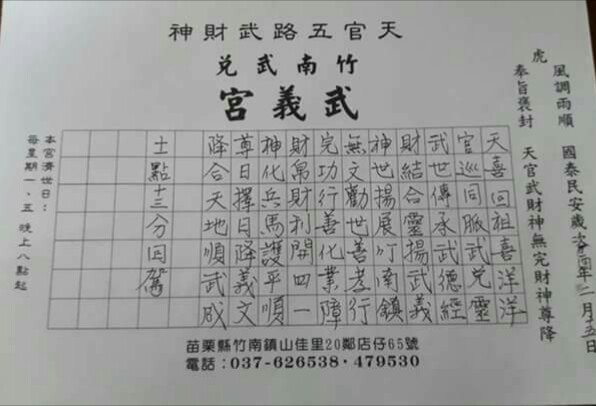 天官五路武財神
竹南武兌
武義宮
風調雨順　國泰民安歲次年二月十五日
虎
奉旨褒封　天官武財神無完財神尊降
天喜回祖喜洋洋
官巡同脈武兌靈
武世傳承武德經
財結合靈揚武義
神世揚展竹南鎮
無文勸世善孝行
完功行善化業障
財帛財利開四一
神化兵馬護平順
尊日擇日降義文
降合天地順武成
十一點十三分回駕
本宮濟世日：
每星期一、五　晚上八點起
苗栗縣竹南鎮山佳里20鄰店仔65號
電話：037-626538・479530